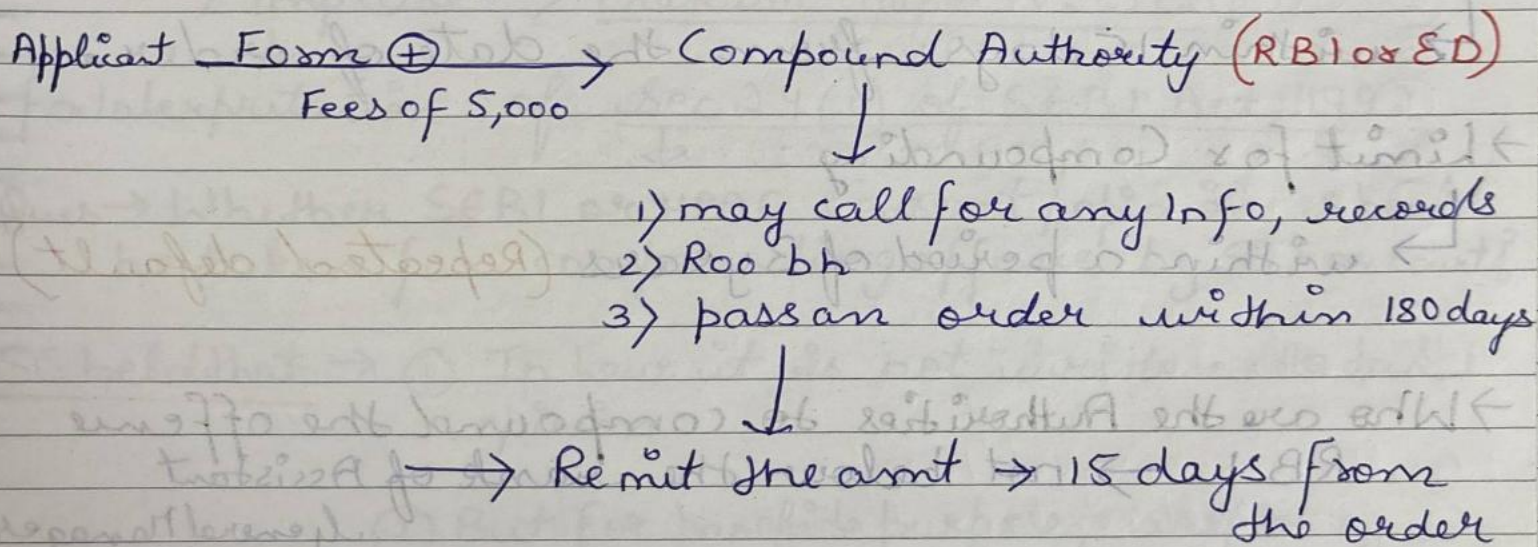 Applicant Form ⊕ → Compound Authority (RBI or ED)
Fees of 5,000
↓
1) may call for any Info, records
2) Roo bh
3) pass an order within 180 days
↓
→ Remit the amt → 15 days from
the order